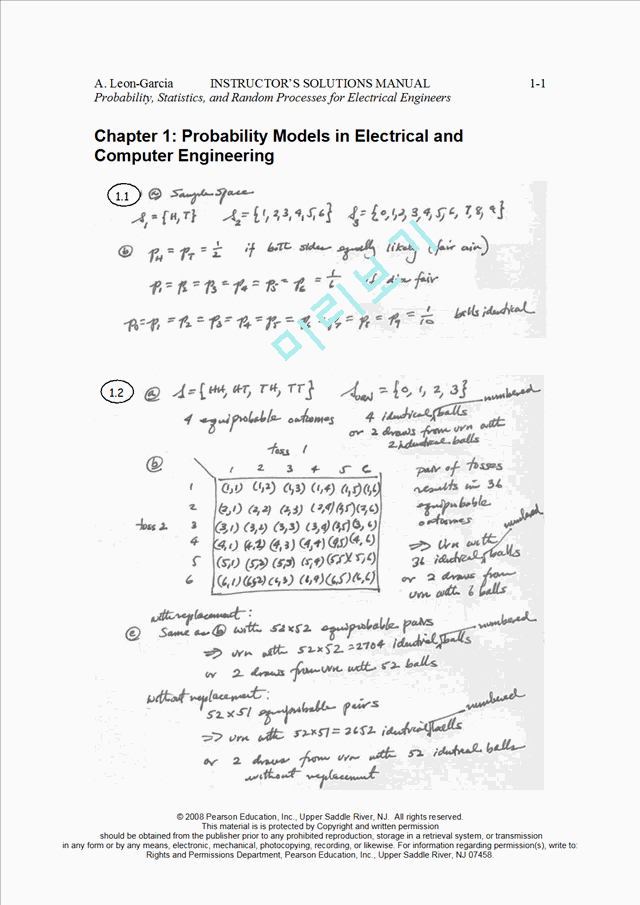 A. Leon-Garcia INSTRUCTOR'S SOLUTIONS MANUAL 1-1
Probability, Statistics, and Random Processes for Electrical Engineers
Chapter 1: Probability Models in Electrical and
Computer Engineering
1.1 (a) Sample Space
S₁ = {H, T} S₂ = {1, 2, 3, 4, 5, 6} S₃ = {0, 1, 2, 3, 4, 5, 6, 7, 8, 9}
(b) p_H = p_T = 1/2 if both sides equally likely (fair coin)
p₁ = p₂ = p₃ = p₄ = p₅ = p₆ = 1/6 if die fair
p₀ = p₁ = p₂ = p₃ = p₄ = p₅ = p₆ = p₇ = p₈ = p₉ = 1/10 balls identical
미리보기
1.2 (a) S = {HH, HT, TH, TT} S_URN = {0, 1, 2, 3}
numbered
4 equiprobable outcomes 4 identical balls
or 2 draws from urn with
2 identical balls
(b) toss 1
1 2 3 4 5 6
1 (1,1) (1,2) (1,3) (1,4) (1,5) (1,6)
2 (2,1) (2,2) (2,3) (2,4) (2,5) (2,6)
toss 2 3 (3,1) (3,2) (3,3) (3,4) (3,5) (3,6)
4 (4,1) (4,2) (4,3) (4,4) (4,5) (4,6)
5 (5,1) (5,2) (5,3) (5,4) (5,5) (5,6)
6 (6,1) (6,2) (6,3) (6,4) (6,5) (6,6)
pair of tosses
results in 36
equiprobable
outcomes
numbered
⇒ Urn with
36 identical balls
or 2 draws from
urn with 6 balls
with replacement:
(c) Same as (b) with 52×52 equiprobable pairs
numbered
⇒ urn with 52×52 = 2704 identical balls
or 2 draws from urn with 52 balls
without replacement:
52×51 equiprobable pairs
numbered
⇒ urn with 52×51 = 2652 identical balls
or 2 draws from urn with 52 identical balls
without replacement
© 2008 Pearson Education, Inc., Upper Saddle River, NJ. All rights reserved.
This material is is protected by Copyright and written permission
should be obtained from the publisher prior to any prohibited reproduction, storage in a retrieval system, or transmission
in any form or by any means, electronic, mechanical, photocopying, recording, or likewise. For information regarding permission(s), write to:
Rights and Permissions Department, Pearson Education, Inc., Upper Saddle River, NJ 07458.